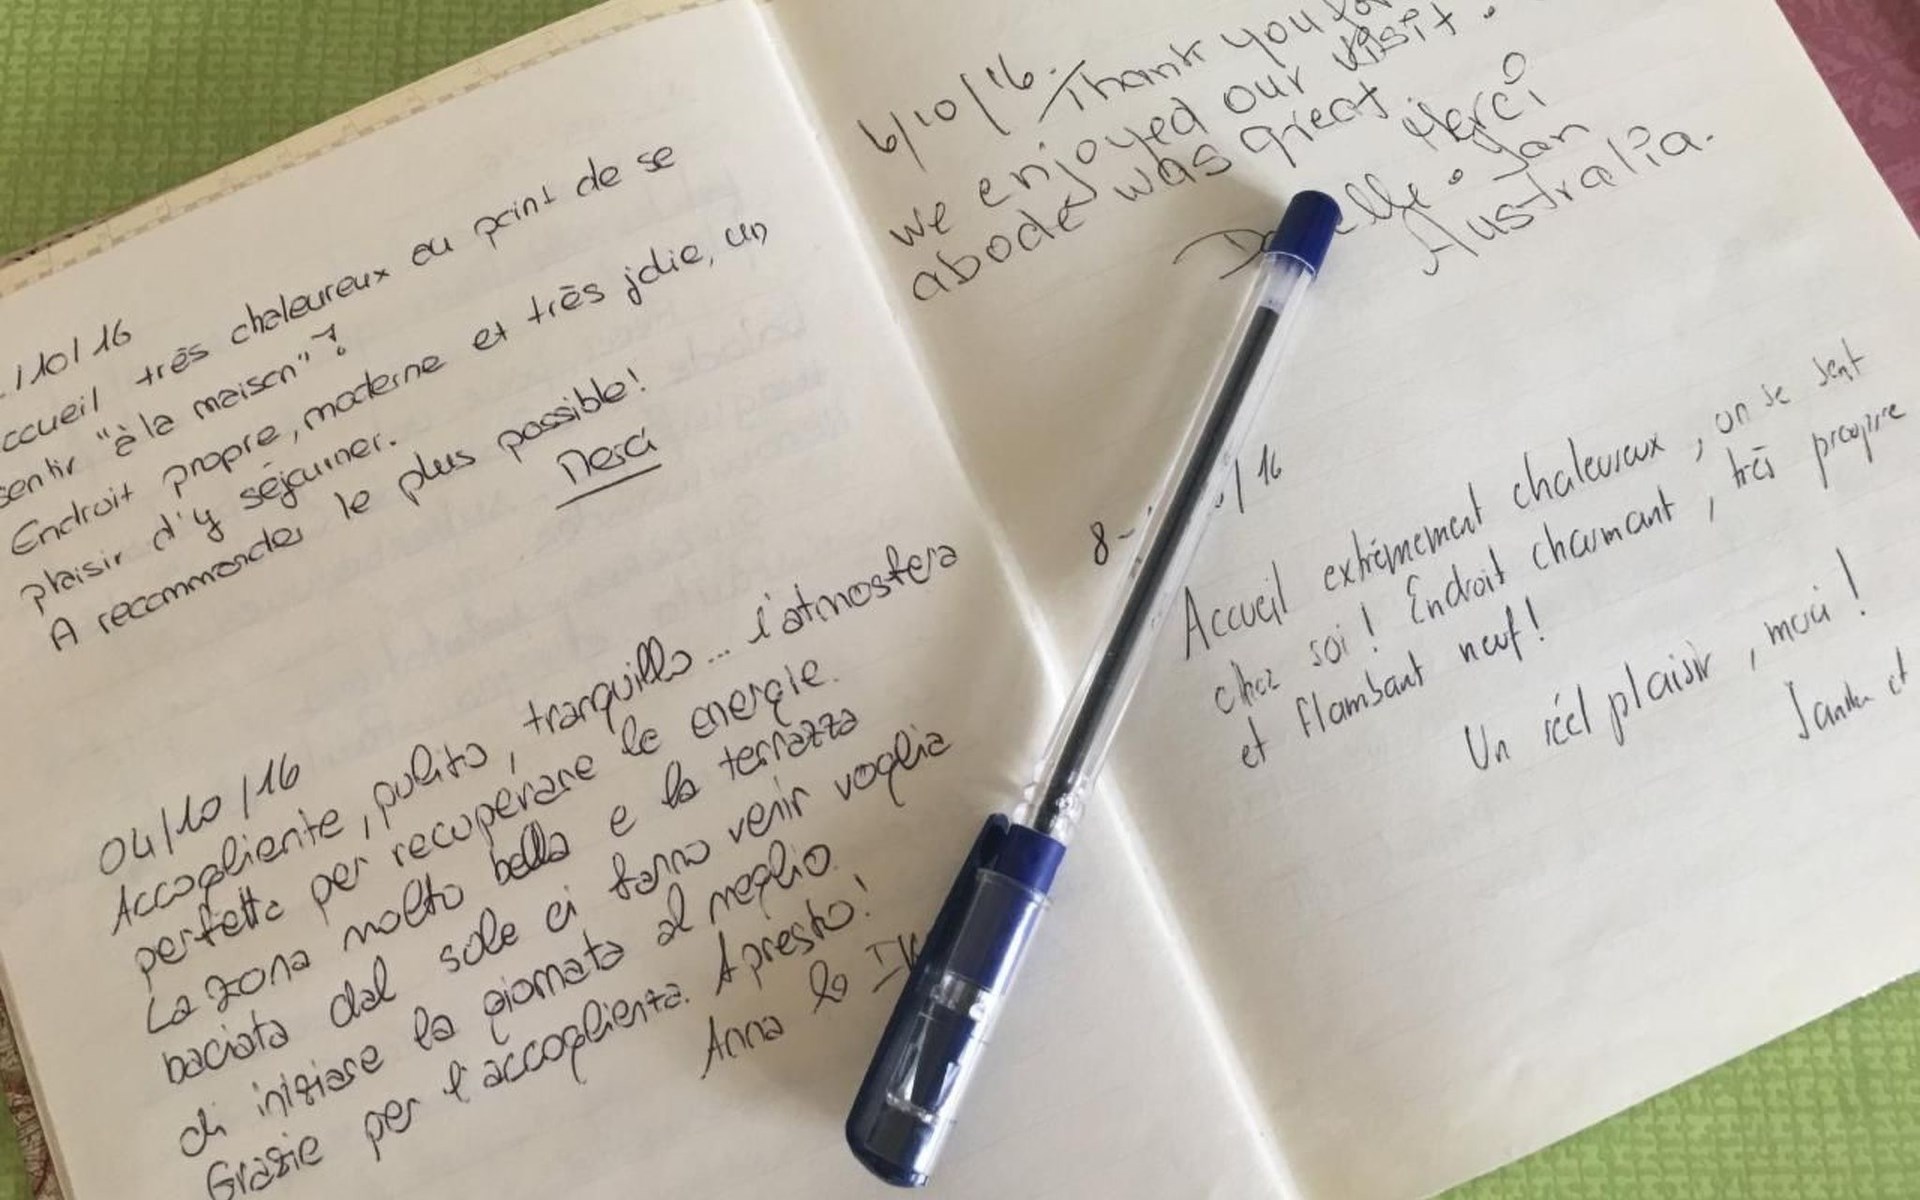 /10/16
ccueil très chaleureux au point de se
sentir "à la maison"!
Endroit propre, moderne et très jolie, un
plaisir d'y séjourner.
A recommander le plus possible!
Merci
04/10/16
Accogliente, pulito, tranquillo... l'atmosfera
perfetta per recuperare le energie.
La zona molto bella e la terrazza
baciata dal sole ci fanno venir voglia
di iniziare la giornata al meglio.
Grazie per l'accoglienza. A presto!
Anna
6/10/16. Thank you for
we enjoyed our visit.
abode was great
Merci
Jan
Australia.
8-
/16
Accueil extrêmement chaleureux, on se sent
chez soi! Endroit charmant, très propre
et flambant neuf!
Un réel plaisir, merci!
et